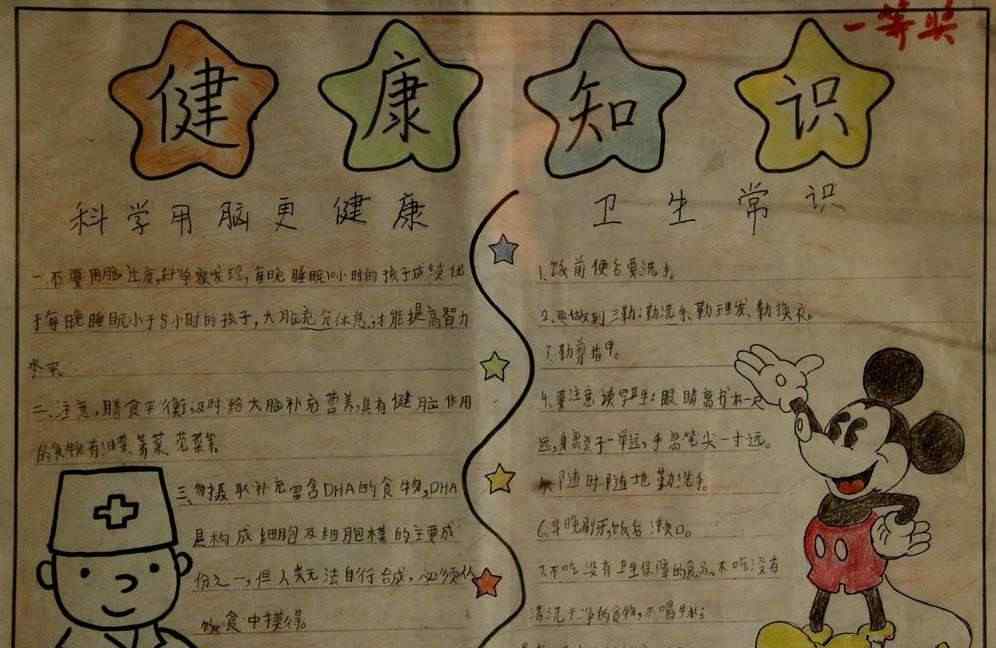 一等奖
健康知识
科学用脑更健康
一.不要用脑过度,科学家发现,每晚睡眠10小时的孩子成绩优
于每晚睡眠小于5小时的孩子,大脑充分休息,才能提高智力
水平。
二.注意,膳食平衡及时给大脑补充营养,具有健脑作用
的食物有油菜、菁菜、芹菜等。
三.多摄取补充富含DHA的食物,DHA
是构成细胞及细胞膜的主要成
份之一,但人类无法自行合成,必须从
饮食中摸得。
卫生常识
1.饭前便后要洗手。
2.要做到三勤:勤洗手、勤理发、勤换衣。
3.勤剪指甲。
4.要注意读写卫生:眼睛离书本一尺
远,身离桌子一拳远,手离笔尖一寸远。
随时随地勤洗手。
6.早晚刷牙,饭后漱口。
7.不吃没有卫生保障的食品,不吃没有
清洗干净的食物,不喝生水;